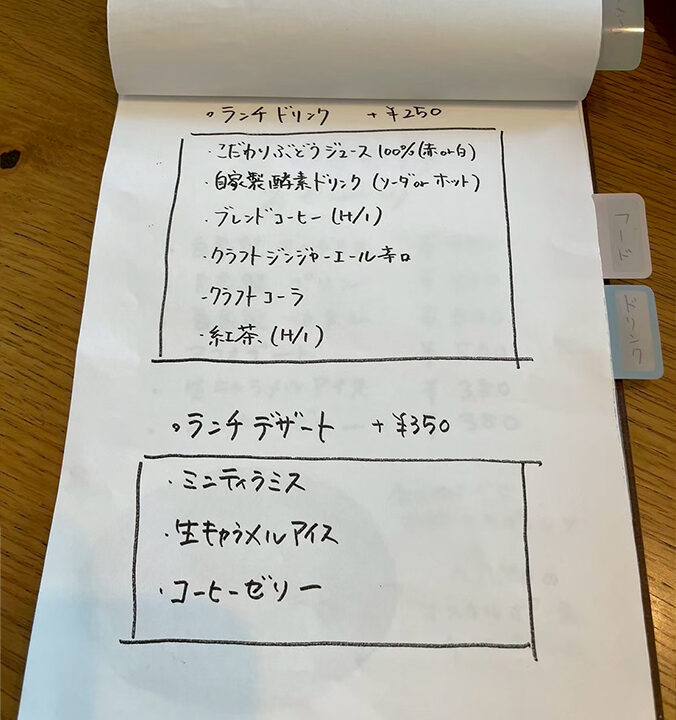 ○ ランチドリンク +¥250
・こだわりぶどうジュース 100% (赤or白)
・自家製酵素ドリンク (ソーダorホット)
・ブレンドコーヒー (H/I)
・クラフトジンジャーエール辛口
・クラフトコーラ
・紅茶 (H/I)
フード
ドリンク
○ ランチデザート +¥350
・ミニティラミス
・生キャラメルアイス
・コーヒーゼリー